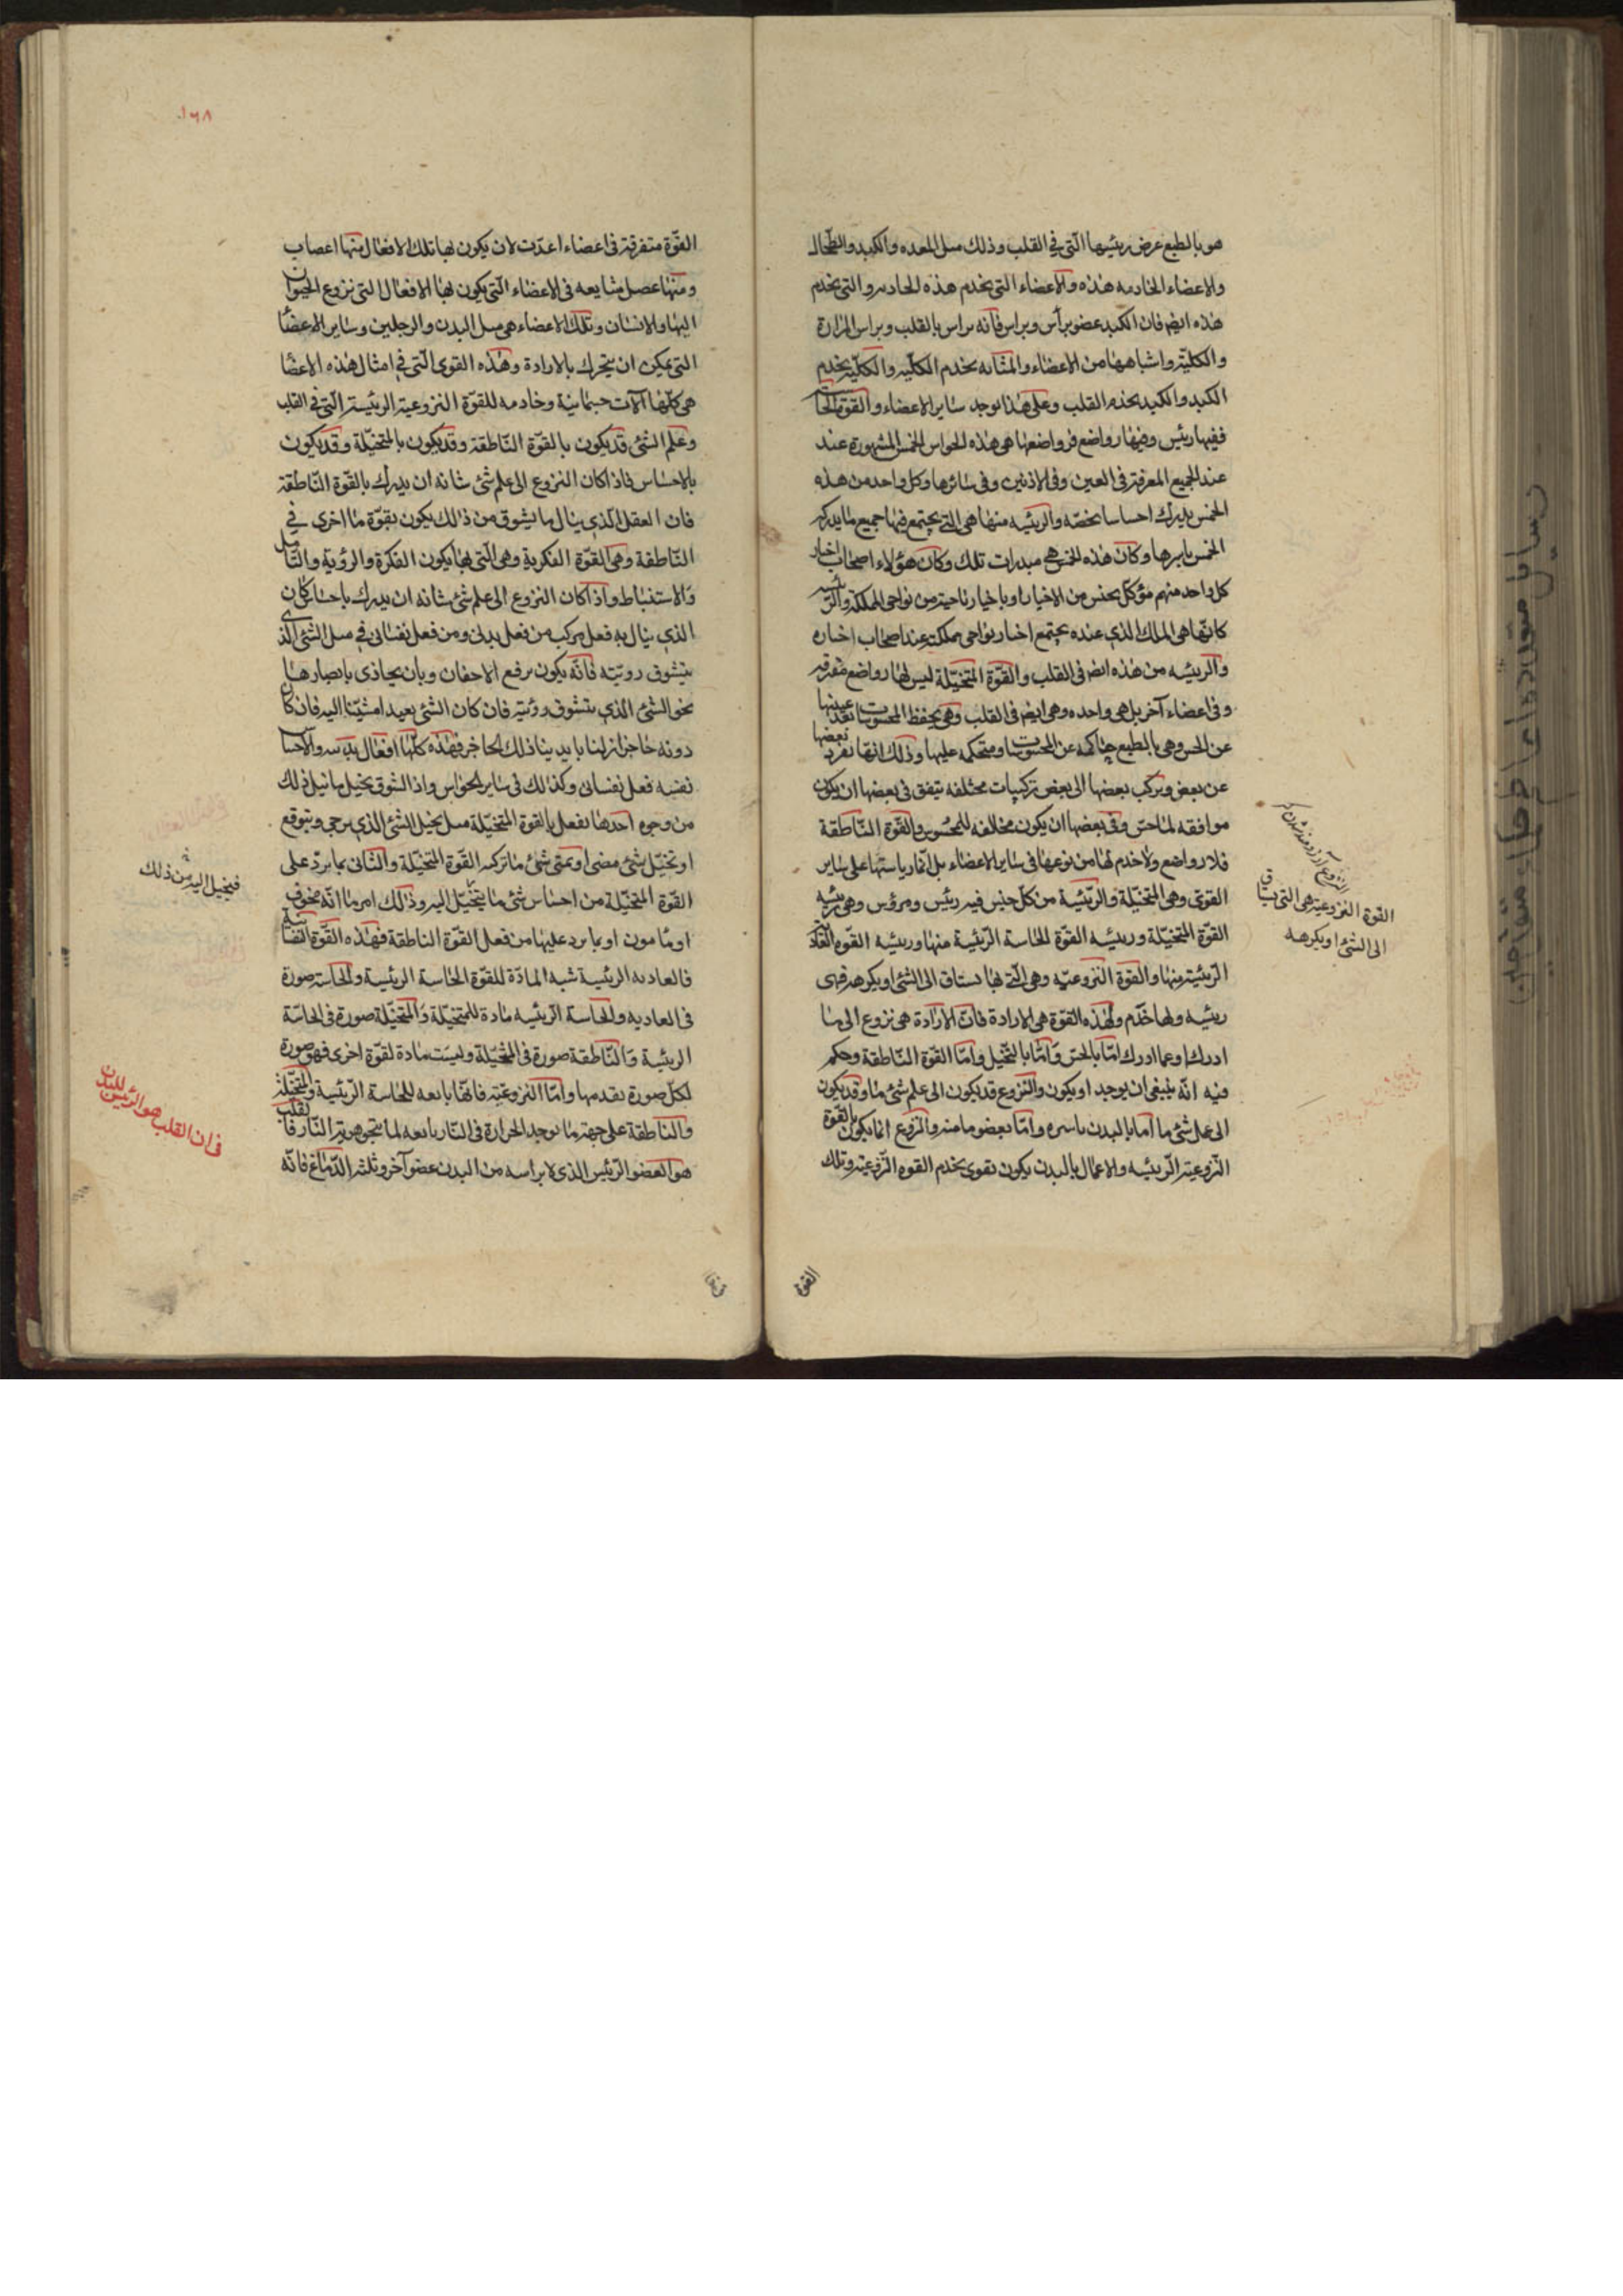 هو بالطبع عرض رئيسها التی فی القلب وذلك مسل المعده والكبد والطحال
والاعضاء الخادمه هذه والاعضاء التی یخدم هذه الخادمه والتی یخدم
هذه ایضا فان الكبد عضو یرأس ویرأس فانه یراس بالقلب ویراس المرارة
والكلیة واشباهها من الاعضاء والمثانه یخدم الكلیه والكلیة یخدم
الكبد والكبد یخدم القلب وعلی هذا یوجد سایر الاعضاء والقوة الحا
ففیها رئیس وفیها رواضع فرواضعها هی هذه الحواس الخمس المشهورة عند
عند الجمیع المعرفة فی العین وفی الاذنین وفی سائرها وكل واحد من هذه
الخمس یدرك احساسا یخصه والرئیسه منها هی التی یجتمع فیها جمیع ما یدركه
الخمس باسرها وكان هذه الخمس هی مبدرات تلك وكان هؤلاء اصحاب اخبار
كل واحد منهم مؤكل بجنس من الاخبار او باخبار ناحیة من نواحی المملكة والرئیسه
كانها هی الملك الذی عنده یجتمع اخبار نواحی مملكته عند اصحاب اخباره
والرئیسه من هذه ایضا فی القلب والقوة المتخیلة لیس لها رواضع متفرقه
وفی اعضاء آخر بل هی واحده وهی ایضا فی القلب وهی یحفظ المحسوسات بعد غیبتها
عن الحس وهی بالطبع حاكمه عن المحسوسات ومتحكمه علیها وذلك انها تفرد بعضها
عن بعض ویركب بعضها الی بعض تركیبات مختلفه یتفق فی بعضها ان یكون
موافقه لما حس وفی بعضها ان یكون مخالفه للمحسوس والقوة الناطقة
فلا رواضع ولا خدم لها من نوعها فی سایر الاعضاء بل انما ریاستها علی سایر
القوی وهی المتخیلة والرئیسة من كل جنس فیه رئیس ومرؤس وهی رئیسه
القوة المتخیلة ورئیسه القوة الحاسة الرئیسة منها ورئیسه القوه الغاذیة
الرئیسة منها والقوة النزوعیه وهی التی بها یشتاق الی الشئ او یكرهه فهی
رئیسه ولها خدم ولهذه القوة هی الارادة فان الارادة هی نزوع الی ما
ادرك او عما ادرك اما بالحس واما بالتخیل واما القوة الناطقة وحكم
فیه انه ینبغی ان یوجد او یكون والنزوع قد یكون الی علم شئ ما وقد یكون
الی عمل شئ ما اما بالبدن باسره واما بعضو ما منه والنزوع انما یكون بالقوة
النزوعیة الرئیسه والاعمال بالبدن یكون بقوی یخدم القوه النزوعیة وتلك
القوة النزوعیة هی التی یشتاق
الی الشئ او یكرهه
القوة
١٦٨
القوة متفرقة فی اعضاء اعدت لان یكون لها تلك الافعال منها اعصاب
ومنها عضل مشایعه فی الاعضاء التی یكون لها الافعال التی نزوع الحیوان
الیها والانسان وتلك الاعضاء هی مسل الیدین والرجلین وسایر الاعضا
التی یمكن ان یتحرك بالارادة وهذه القوی التی فی امثال هذه الاعضا
هی كلها آلات جسمانیة وخادمه للقوة النزوعیة الرئیسة التی فی القلب
وعلم الشئ قد یكون بالقوة الناطقة وقد یكون بالمتخیلة وقد یكون
بالاحساس فاذا كان النزوع الی علم شئ شانه ان یدرك بالقوة الناطقة
فان العقل الذی ینال ما یشوق من ذلك یكون بقوة ما اخری فی
الناطقة وهی القوة الفكریة وهی التی بها یكون الفكرة والرؤیة والتامل
والاستنباط واذا كان النزوع الی علم شئ شانه ان یدرك باحساس كان
الذی ینال به فعل مركب من فعل بدنی ومن فعل نفسانی فی مسل الشئ الذی
یتشوق رویته فانه یكون برفع الاجفان وبان یحاذی بابصارها
نحو الشئ الذی یتشوق رویته فان كان الشئ بعیدا مشینا الیه فان كان
دونه حاجز ازلنا بایدینا ذلك الحاجز فهذه كلها افعال بدنیه والاحسا
نفسه فعل نفسانی وكذلك فی سایر الحواس واذا تشوق تخیل ما نیل ذلك
من وجوه احدها یفعل بالقوة المتخیلة مسل تخیل الشئ الذی یرجی ویتوقع
او تخیل شئ مضی او تمنی شئ ما تركبه القوة المتخیلة والثانی بما یرد علی
القوة المتخیلة من احساس شئ ما یتخیل الیه وذلك امر ما انه مخوف
او مامون او بما یرد علیها من فعل القوة الناطقة فهذه القوة النفسانیة
فالغاذیه الرئیسیة شبه المادة للقوة الحاسة الرئیسة والحاسة صورة
فی الغاذیه والحاسة الرئیسه مادة للمتخیلة والمتخیلة صورة فی الحاسة
الرئیسة والناطقة صورة فی المتخیلة ولیست مادة لقوة اخری فهی صورة
لكل صورة تقدمها واما النزوعیة فانها تابعه للحاسة الرئیسیة والمتخیلة
والناطقة علی جهة ما یوجد الحرارة فی النار تابعه لما یتجوهر به النار فالقلب
هو العضو الرئیس الذی لا یراسه من البدن عضو آخر وثلثه الدماغ فانه
فیخیل الیه من ذلك
فان القلب هو الرئیس للبدن